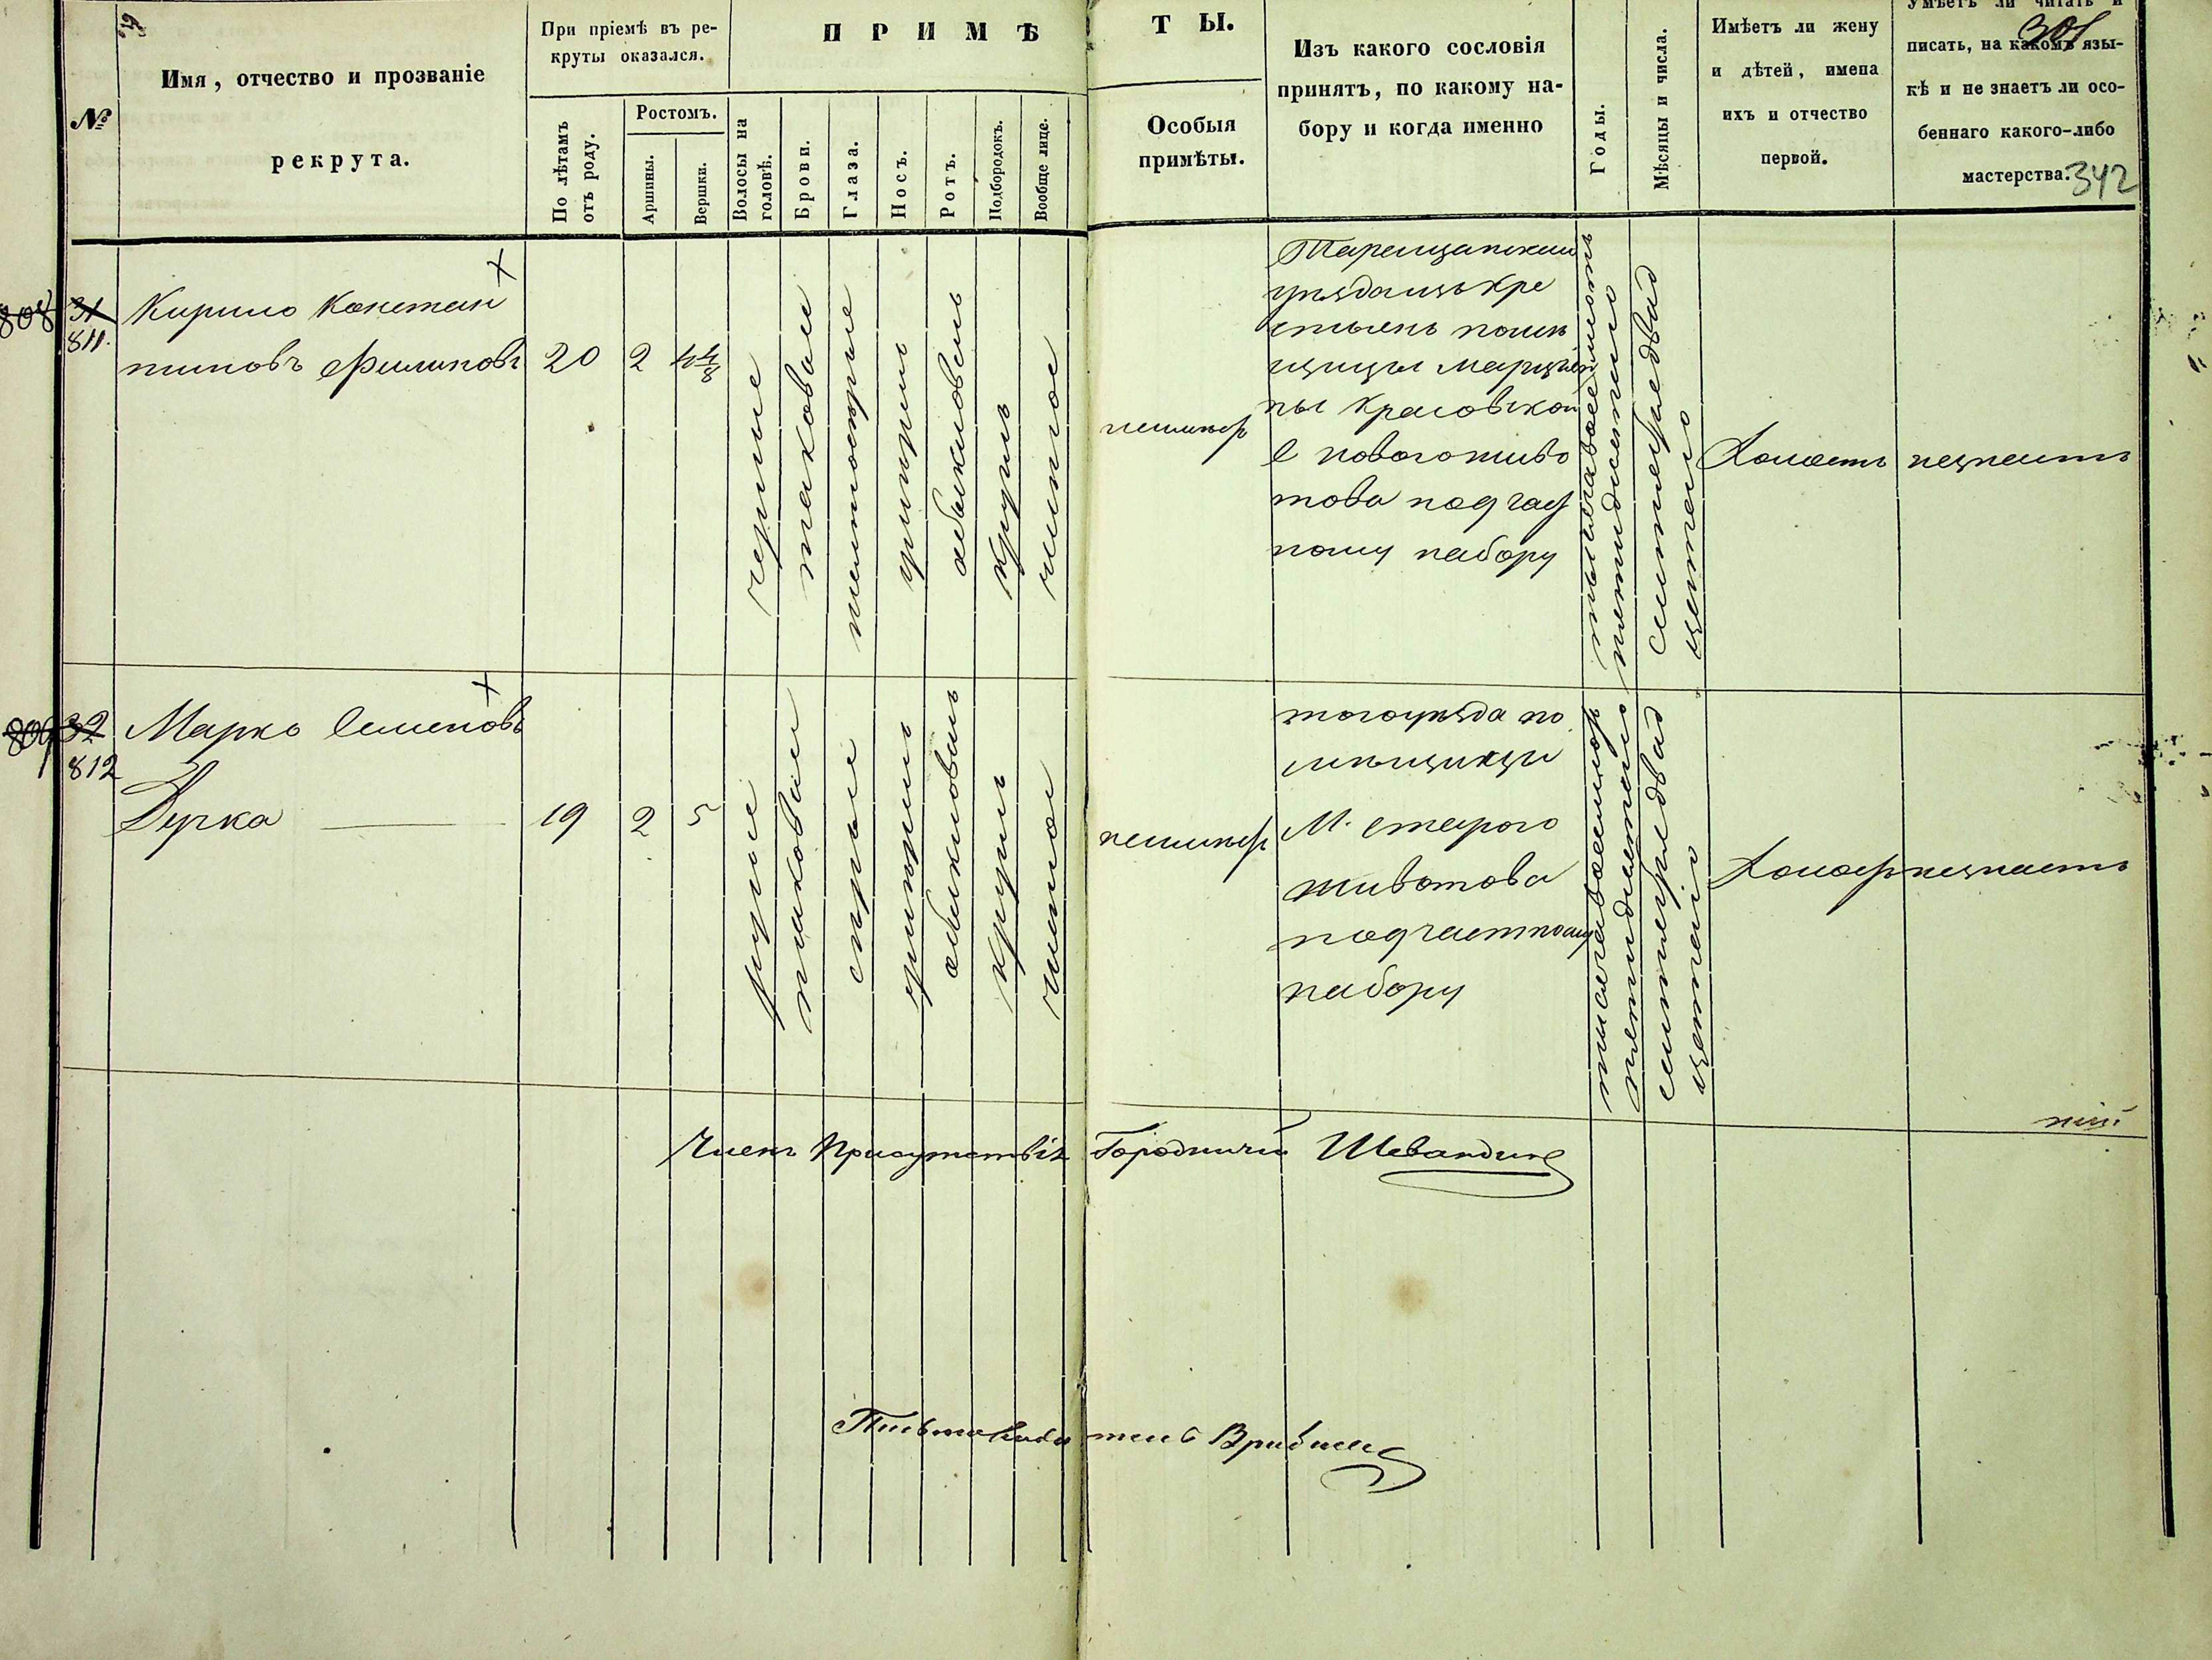 19
301
342
№
Имя, отчество и прозваніе
рекрута.
При пріемѣ въ ре-
круты оказался.
По лѣтамъ
отъ роду.
Ростомъ.
Аршины.
Вершки.
ПРИМѢ
ТЫ.
Волосы на
головѣ.
Брови.
Глаза.
Носъ.
Ротъ.
Подбородокъ.
Вообще лице.
Особыя
примѣты.
Изъ какого сословія
принятъ, по какому на-
бору и когда именно
Годы.
Мѣсяцы и числа.
Имѣетъ ли жену
и дѣтей, имена
ихъ и отчество
первой.
Умѣетъ ли читать и
писать, на какомъ язы-
кѣ и не знаетъ ли осо-
беннаго какого-либо
мастерства.
808
31
811
Кирило Констан
тиновъ Филиповъ
20
2
4 4/8
черные
таковыи
умѣрины
обыкновень
круглъ
чистое
неимѣр
Таращанскаи
уѣзда изъ кре
стьянъ помѣ
щицы
ны Красовской
С новогоживо
това под час
ному набору
тысяча восемсотъ
пятидисятаго
сентебря двад
цетаго
Холостъ
незнаетъ
809
32
812
Марко Семеновъ
Дурка
19
2
5
русые
таковыи
сѣрые
умѣрины
обыкновень
круглъ
чистое
неимѣр
тогоуѣзда по
мѣщицы
М. старого
животова
подчастному
набору
тисеча восемсор
пятидисятаго
сентебря двад
цетаго
Холост
незнаетъ
Членъ Присутствія Городничій Шевандинъ
Письмоводитель